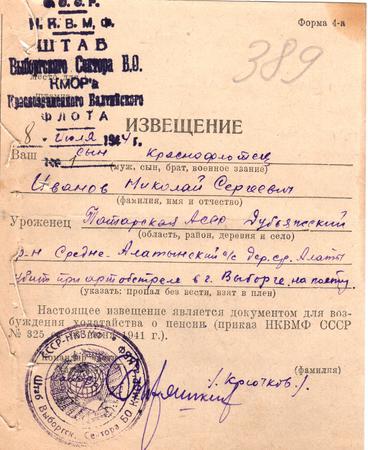 С.С.С.Р.
Н.К.В.М.Ф.
ШТАБ
Выборгского Сектора Б.О.
КМОР'а
Краснознаменного Балтийского
ФЛОТА
Форма 4-а
389
8 июля 1944 г.
ИЗВЕЩЕНИЕ
Ваш сын краснофлотец
(муж, сын, брат, военное звание)
Иванов Николай Сергеевич
(фамилия, имя и отчество)
Уроженец Татарская АССР Дубьязский
(область, район, деревня и село)
р-н Средне-Алатынский с/с дер. ср. Алаты
убит при артобстреле в г. Выборге, на посту
(указать: пропал без вести, взят в плен)
Настоящее извещение является документом для воз-
буждения ходатайства о пенсии (приказ НКВМФ СССР
№ 325 1941 г.).
/. Крючков./
(фамилия)
СССР-НКВМФ
Штаб Выборгск. Сектора БО КМОР